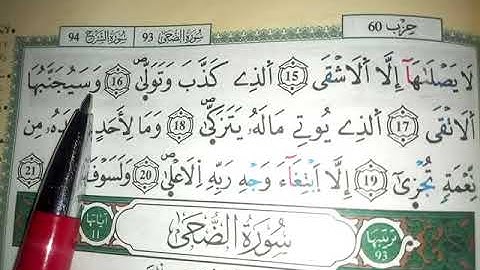 حِزْب 60
سُورَةُ الضُّحَى 93 سُورَةُ الشَّرْحِ 94
لَا يَصْلَىٰهَآ إِلَّا اَلَاشْقَى 15 اَلذِے كَذَّبَ وَتَوَلّ۪ىٰ 16 وَسَيُجَنَّبُهَا
اَلَاتْقَى 17 اَلذِے يُوتِے مَالَهُۥ يَتَزَكّ۪ىٰ 18 وَمَا لِأَحَدٍ مِن
نِّعْمَةٍ تُجْز۪ىٰٓ 19 إِلَّا اَبْتِغَآءَ وَجْهِ رَبِّهِ اِلَاعْل۪ىٰ 20 وَلَسَوْفَ 21
آيَاتُهَا 11
سُورَةُ الضُّحَىٰ
تَرْتِيبُهَا 93